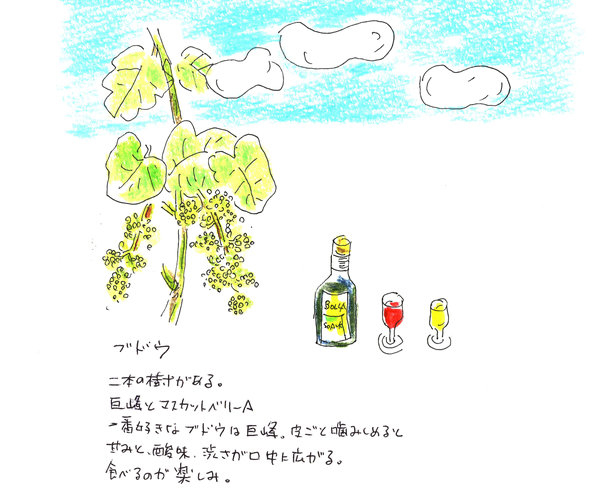 BOLLA
SOAVE
ブドウ
二本の樹がある。
巨峰とマスカットベリーA
一番好きなブドウは巨峰。皮ごと噛みしめると
甘みと、酸味、渋さが口中に広がる。
食べるのが楽しみ。